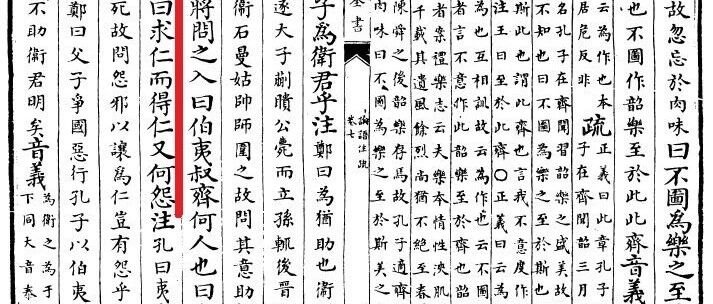 故忽忘於肉味曰不圖為樂之至
也不圖作韶樂至於此此齊音義
云為作也本
居危反非
疏
正義曰此章孔子
子在齊聞韶三月
名孔子在齊聞習韶樂之盛美故
不知也曰不圖為樂之至於斯也
斯此也謂此齊也言我不意度作
注王曰至於此齊○正義曰云為
為也互相訓故云為作也云不圖
者言不意作此韶樂至於齊也韶
者案禮樂志云夫樂本情性浹肌
千載其遺風餘烈尚猶不絕至春
陳舜之後韶樂存焉故孔子適齊
肉味曰不圖為樂之至於斯美之
全書
論語注疏
卷七
子為衛君乎注鄭曰為猶助也衛
逐大子蒯聵公薨而立孫輒後晉
衛石曼姑帥師圍之故問其意助
將問之入曰伯夷叔齊何人也曰
曰求仁而得仁又何怨注孔曰夷
死故問怨邪以讓為仁豈有怨乎
鄭曰父子爭國惡行孔子以伯夷
不助衛君明矣音義
為衛之為于
下同大音泰